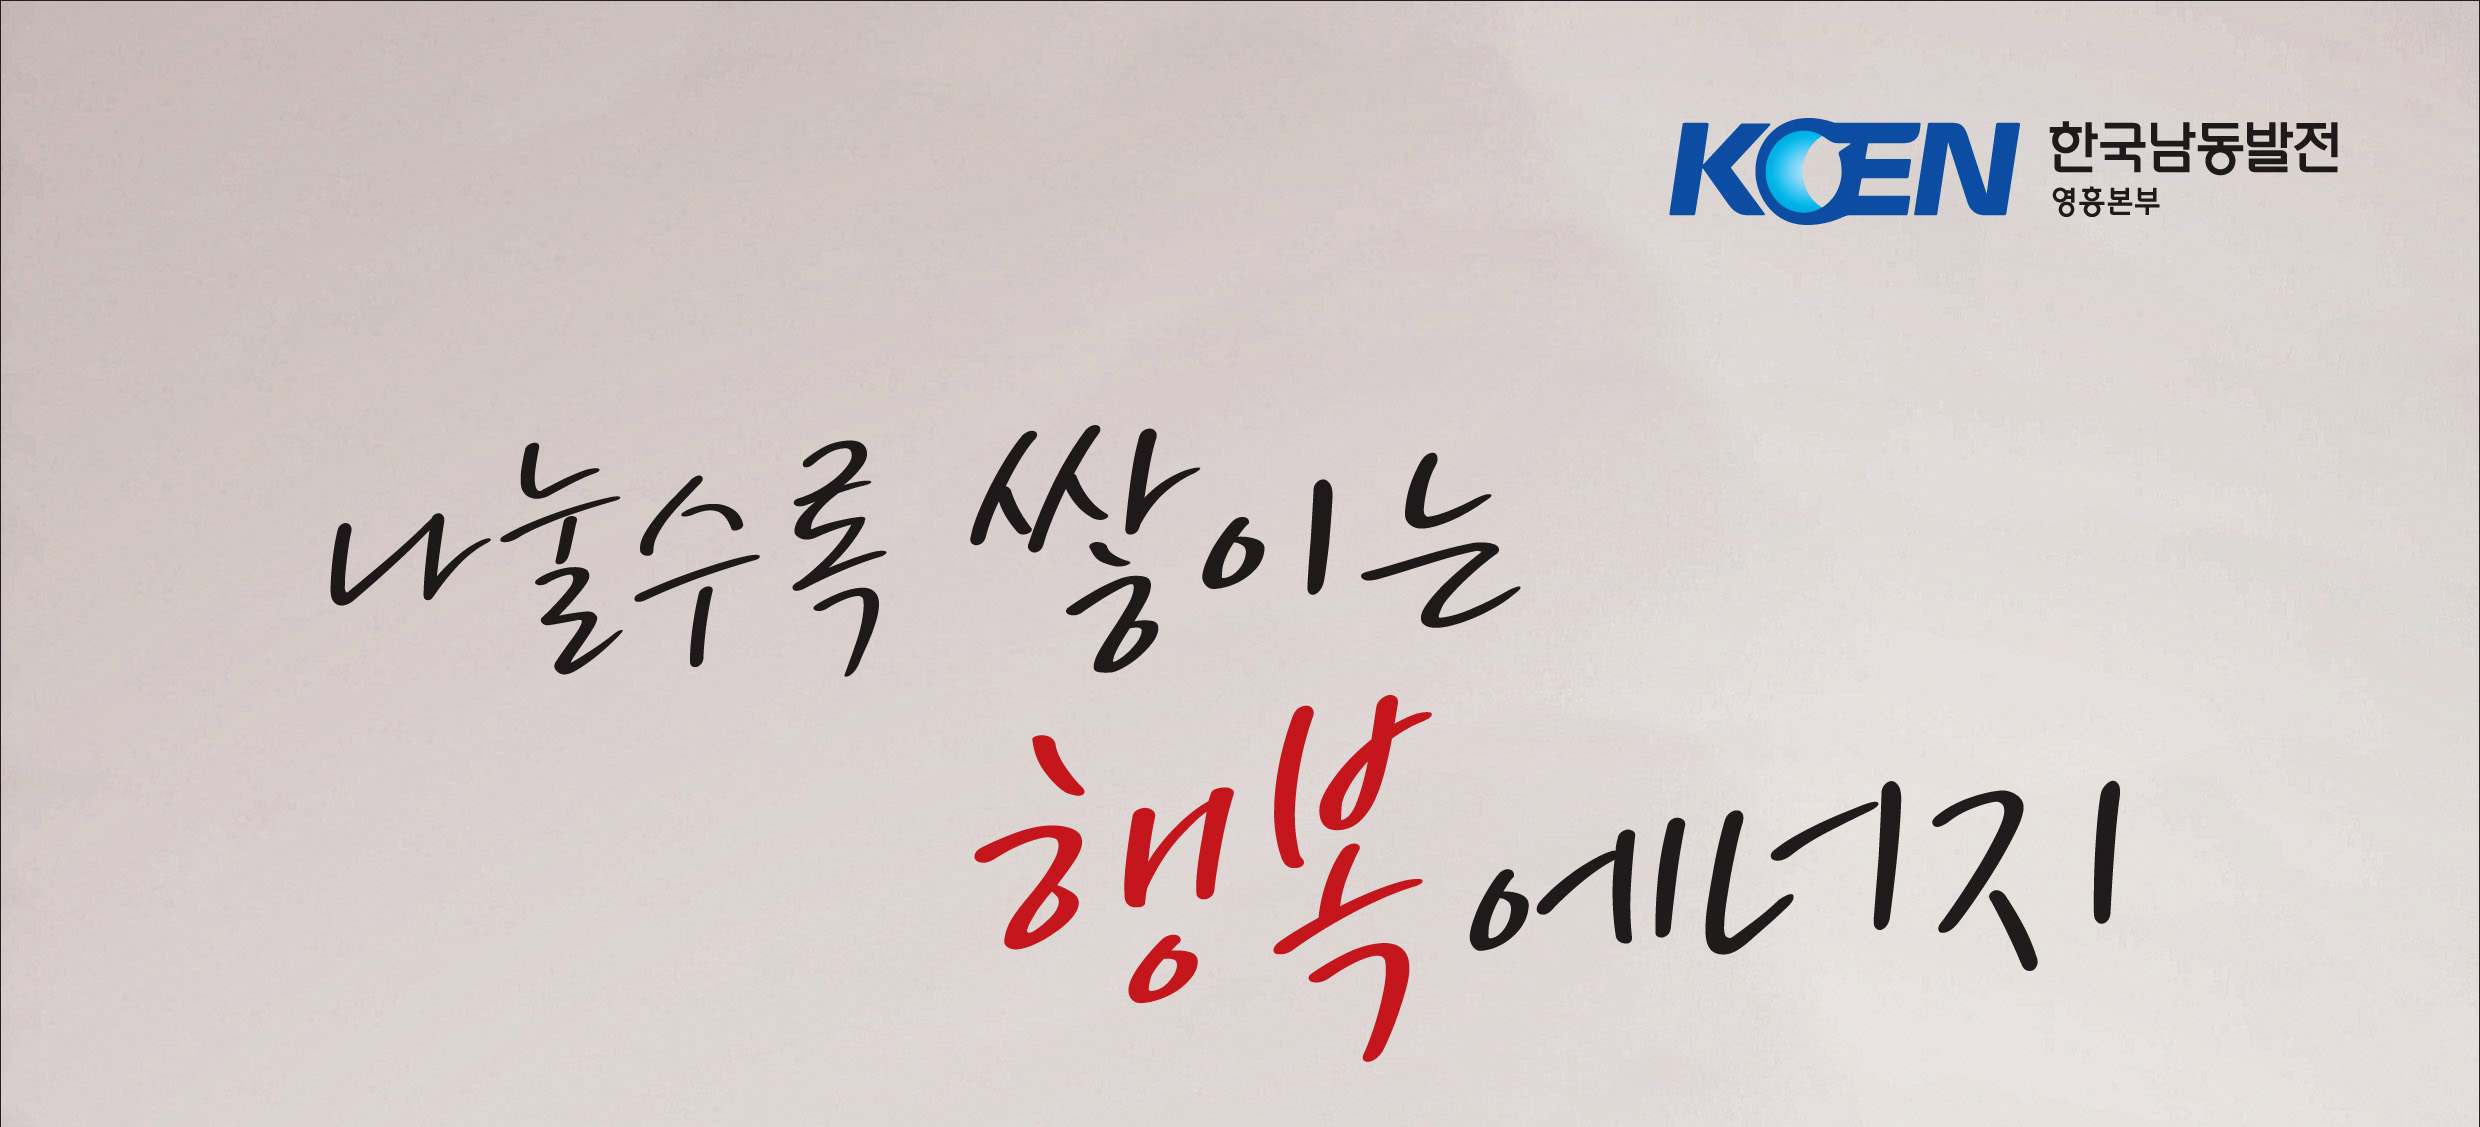 KOEN 한국남동발전
영흥본부
나눌수록 쌓이는
행복에너지